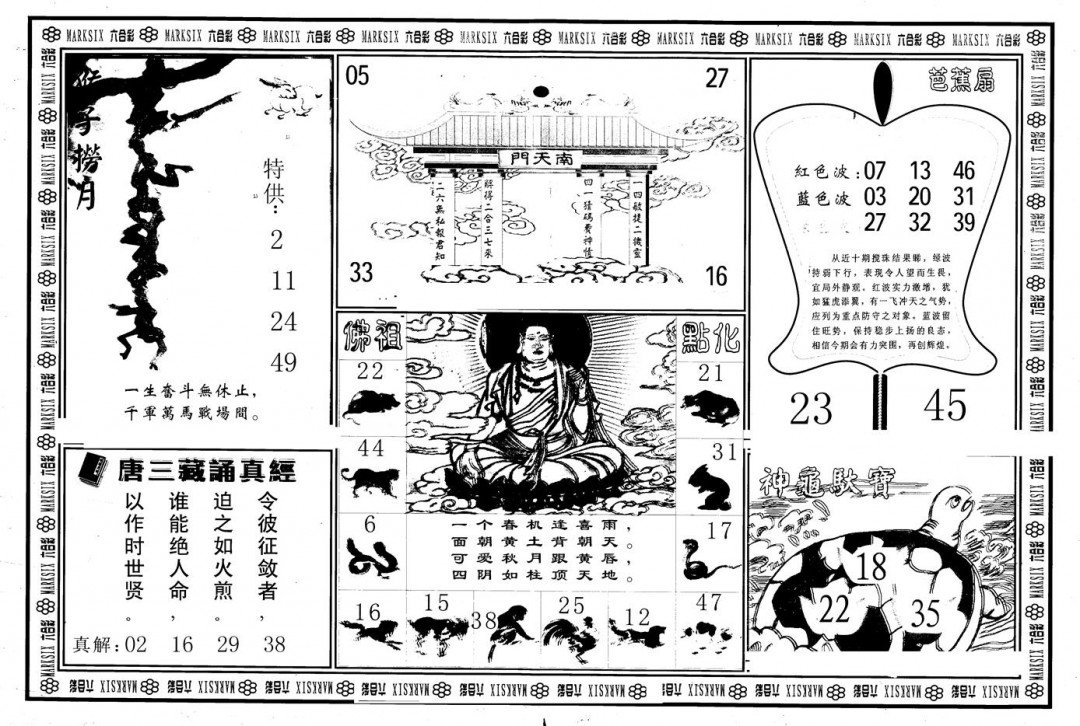 MARKSIX 六合彩 MARKSIX 六合彩 MARKSIX 六合彩 MARKSIX 六合彩 MARKSIX 六合彩 MARKSIX 六合彩 MARKSIX 六合彩 MARKSIX 六合彩 MARKSIX 六合彩 MARKSIX 六合彩
猴子撈月
特供:
2
11
24
49
一生奮斗無休止,
千軍萬馬戰場間。
05
27
南天門
二六無私報君知
將得二合三七来
四一猜碼費神情
一四敏捷二機靈
33
16
芭蕉扇
紅色波:07 13 46
藍色波 03 20 31
27 32 39
从近十期搅珠结果睇,绿波
持弱下行,表现令人望而生畏,
宜局外静观。红波实力激增,犹
如猛虎添翼,有一飞冲天之气势,
应列为重点防守之对象。蓝波留
住旺势,保持稳步上扬的良态,
相信今期会有力突围,再创辉煌。
23
45
佛祖
點化
22
21
44
31
6
17
一个春机逢喜雨,
面朝黄土背朝天。
可爱秋月跟黄唇,
四阴如柱顶天地。
16
15
38
25
12
47
唐三藏誦真經
令彼征敛者,
迫之如火煎。
谁能绝人命,
以作时世贤。
真解:02 16 29 38
神龜馱寶
18
22
35
MARKSIX 六合彩 MARKSIX 六合彩 MARKSIX 六合彩 MARKSIX 六合彩 MARKSIX 六合彩 MARKSIX 六合彩 MARKSIX 六合彩 MARKSIX 六合彩 MARKSIX 六合彩